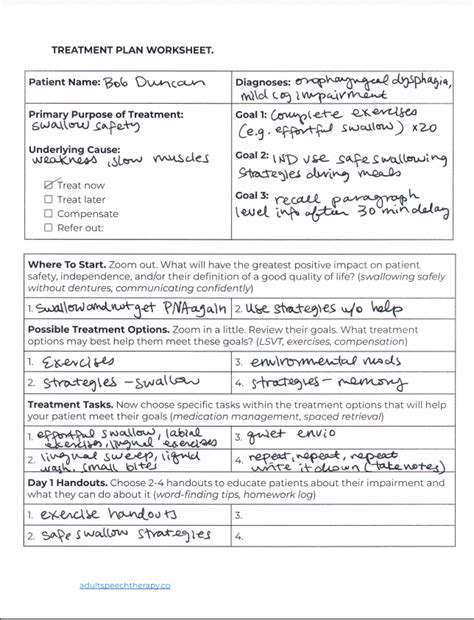 TREATMENT PLAN WORKSHEET.
Patient Name: Bob Duncan
Diagnoses: oropharyngeal dysphagia,
mild cog impairment
Primary Purpose of Treatment:
swallow safety
Goal 1: Complete exercises
(e.g. effortful swallow) x20
Underlying Cause:
weakness, slow muscles
Goal 2: IND use safe swallowing
strategies during meals
Treat now
Treat later
Compensate
Refer out:
Goal 3: recall paragraph
level info after 30 min delay
Where To Start. Zoom out. What will have the greatest positive impact on patient
safety, independence, and/or their definition of a good quality of life? (swallowing safely
without dentures, communicating confidently)
1. Swallow and not get PNA again
2. Use strategies w/o help
Possible Treatment Options. Zoom in a little. Review their goals. What treatment
options may best help them meet these goals? (LSVT, exercises, compensation)
1. Exercises
3. environmental mods
2. strategies - swallow
4. strategies - memory
Treatment Tasks. Now choose specific tasks within the treatment options that will help
your patient meet their goals (medication management, spaced retrieval)
1. effortful swallow, labial
exercises, lingual exercises
3. quiet enviro
2. lingual sweep, liquid
wash, small bites
4. repeat, repeat, repeat
write it down (take notes)
Day 1 Handouts. Choose 2-4 handouts to educate patients about their impairment and
what they can do about it (word-finding tips, homework log)
1. exercise handouts
3.
2. safe swallow strategies
4.
adultspeechtherapy.co